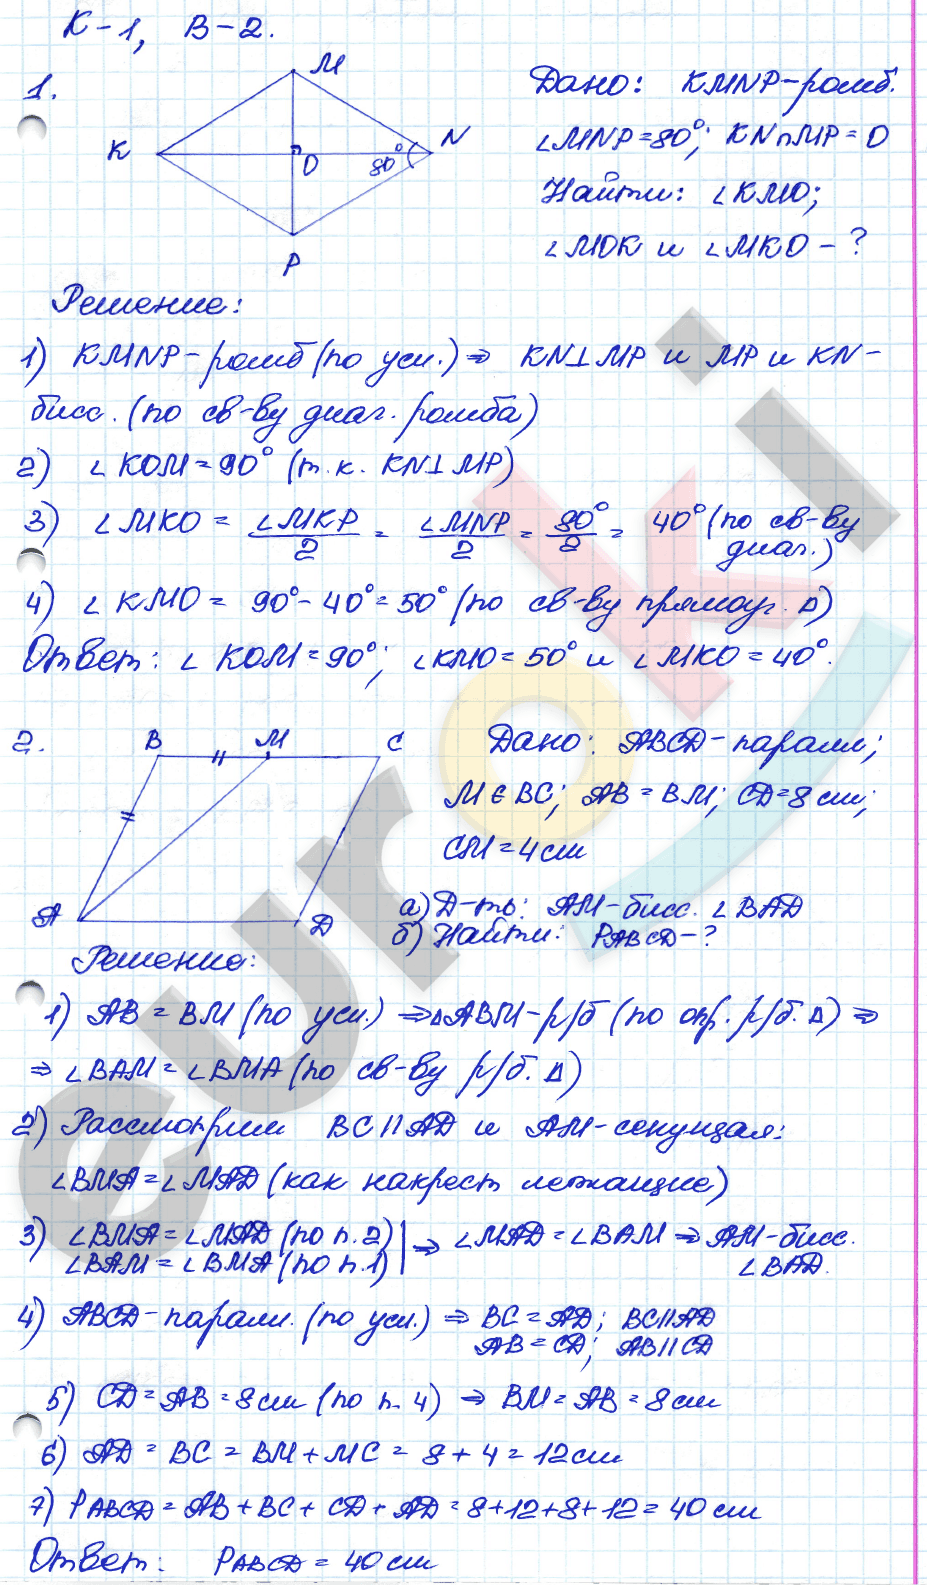 К-1, В-2.
1.
M
K
N
O
80°
P
Дано: KMNP-ромб.
∠MNP=80°; KN∩MP=O
Найти: ∠KMO;
∠MOK и ∠MKO-?
Решение:
1) KMNP-ромб (по усл.) ⇒ KN⊥MP и MP и KN-
бисс. (по св-ву диаг. ромба)
2) ∠KOM=90° (т.к. KN⊥MP)
3) ∠MKO = ∠MKP/2 = ∠MNP/2 = 80°/2 = 40° (по св-ву
диаг.)
4) ∠KMO = 90°-40°=50° (по св-ву прямоуг. Δ)
Ответ: ∠KOM=90°; ∠KMO=50° и ∠MKO=40°.
2.
B
M
C
A
D
Дано: ABCD-паралл;
M∈BC; AB=BM; CD=8см;
CM=4см
а) Д-ть: AM-бисс. ∠BAD
б) Найти: PABCD-?
Решение:
1) AB=BM (по усл.) ⇒ΔABM-р/б (по опр. р/б. Δ) ⇒
⇒ ∠BAM=∠BMA (по св-ву р/б. Δ)
2) Рассмотрим BC||AD и AM-секущая:
∠BMA=∠MAD (как накрест лежащие)
3) ∠BMA=∠MAD (по п.2) | ⇒ ∠MAD=∠BAM ⇒ AM-бисс.
∠BAM=∠BMA (по п.1) ∠BAD.
4) ABCD-паралл. (по усл.) ⇒ BC=AD; BC||AD
AB=CD; AB||CD
5) CD=AB=8см (по п. 4) ⇒ BM=AB=8см
6) AD = BC = BM+MC = 8+4=12см
7) PABCD = AB+BC+CD+AD=8+12+8+12=40см
Ответ: PABCD=40см
euroki